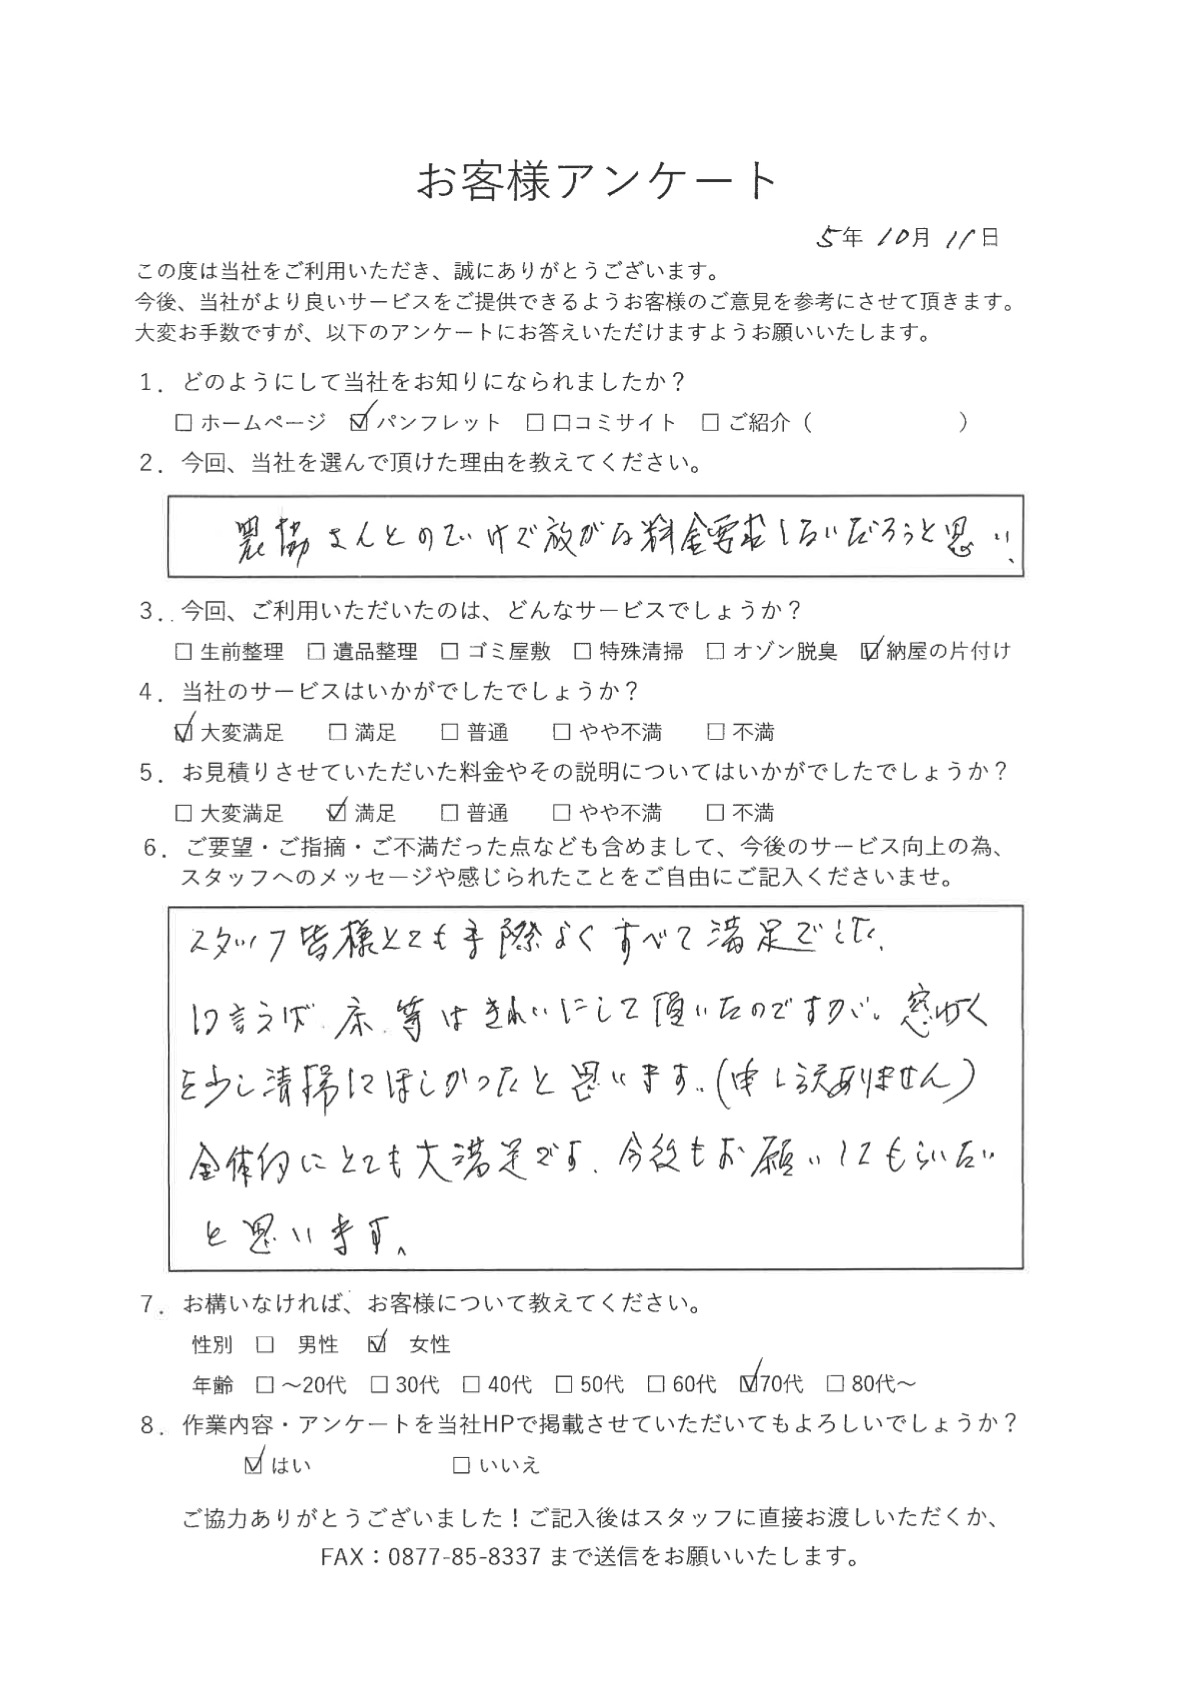 お客様アンケート
5年 10月 11日
この度は当社をご利用いただき、誠にありがとうございます。
今後、当社がより良いサービスをご提供できるようお客様のご意見を参考にさせて頂きます。
大変お手数ですが、以下のアンケートにお答えいただけますようお願いいたします。
1. どのようにして当社をお知りになられましたか？
□ ホームページ ☑ パンフレット □ 口コミサイト □ ご紹介（ ）
2. 今回、当社を選んで頂けた理由を教えてください。
農協さんとの で 料金要求しないだろうと思い、
3. 今回、ご利用いただいたのは、どんなサービスでしょうか？
□ 生前整理 □ 遺品整理 □ ゴミ屋敷 □ 特殊清掃 □ オゾン脱臭 ☑ 納屋の片付け
4. 当社のサービスはいかがでしたでしょうか？
☑ 大変満足 □ 満足 □ 普通 □ やや不満 □ 不満
5. お見積りさせていただいた料金やその説明についてはいかがでしたでしょうか？
□ 大変満足 ☑ 満足 □ 普通 □ やや不満 □ 不満
6. ご要望・ご指摘・ご不満だった点なども含めまして、今後のサービス向上の為、
スタッフへのメッセージや感じられたことをご自由にご記入くださいませ。
スタッフ皆様とても手際よくすべて満足でした。
言えば、床、等はきれいにして頂いたのですが、窓わく
を少し清掃してほしかったと思います。（申し訳ありません）
全体的にとても大満足です。今後もお願いしてもらいたい
と思います。
7. お構いなければ、お客様について教えてください。
性別 □ 男性 ☑ 女性
年齢 □ ～20代 □ 30代 □ 40代 □ 50代 □ 60代 ☑ 70代 □ 80代～
8. 作業内容・アンケートを当社HPで掲載させていただいてもよろしいでしょうか？
☑ はい □ いいえ
ご協力ありがとうございました！ご記入後はスタッフに直接お渡しいただくか、
FAX：0877-85-8337 まで送信をお願いいたします。